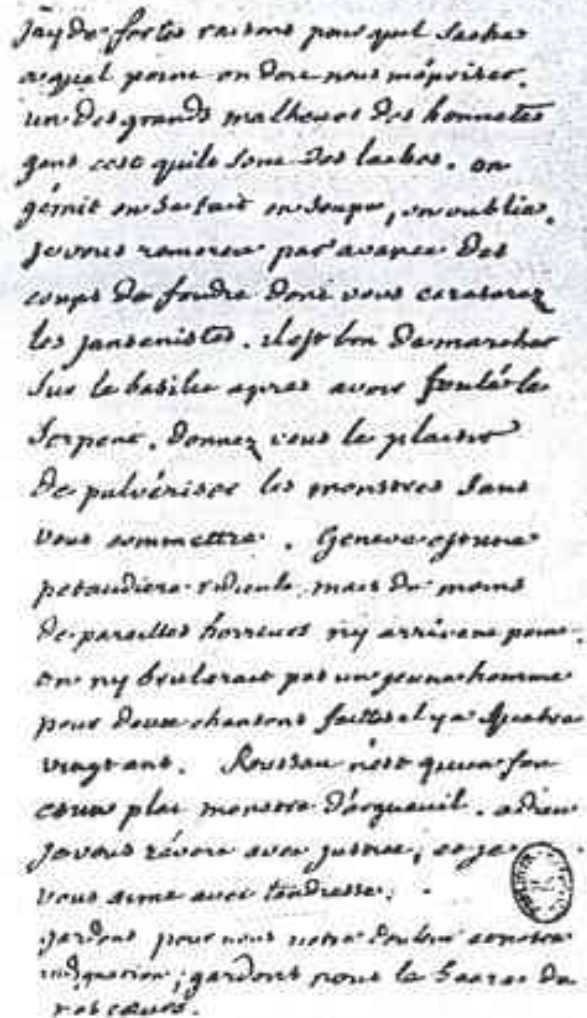 jay de fortes raisons pour quil sache
a quel point on doit nous mépriser.
un des grands malheurs des honnetes
gens cest quils sont des laches. on
gémit on se tait on soupe, on oublie.
je vous remercie par avance des
coups de foudre dont vous ecraserez
les jansenistes. il est bon de marcher
sur le basilic apres avoir foulé le
serpent. donnez vous le plaisir
de pulvériser les monstres sans
vous commettre. Geneve est une
petaudiere ridicule, mais du moins
de pareilles horreurs ny arrivent point.
on ny bruleroit pas un jeune homme
pour deux chansons faittes il y a quatre
vingt ans. Rousseau n'est quun fou
et un plat monstre d'orgueuil. adieu
je vous révere avec justice, et je
vous aime avec tendresse.
gardons pour nous notre douleur et notre
indignation; gardons nous le secret de
nos cœurs.